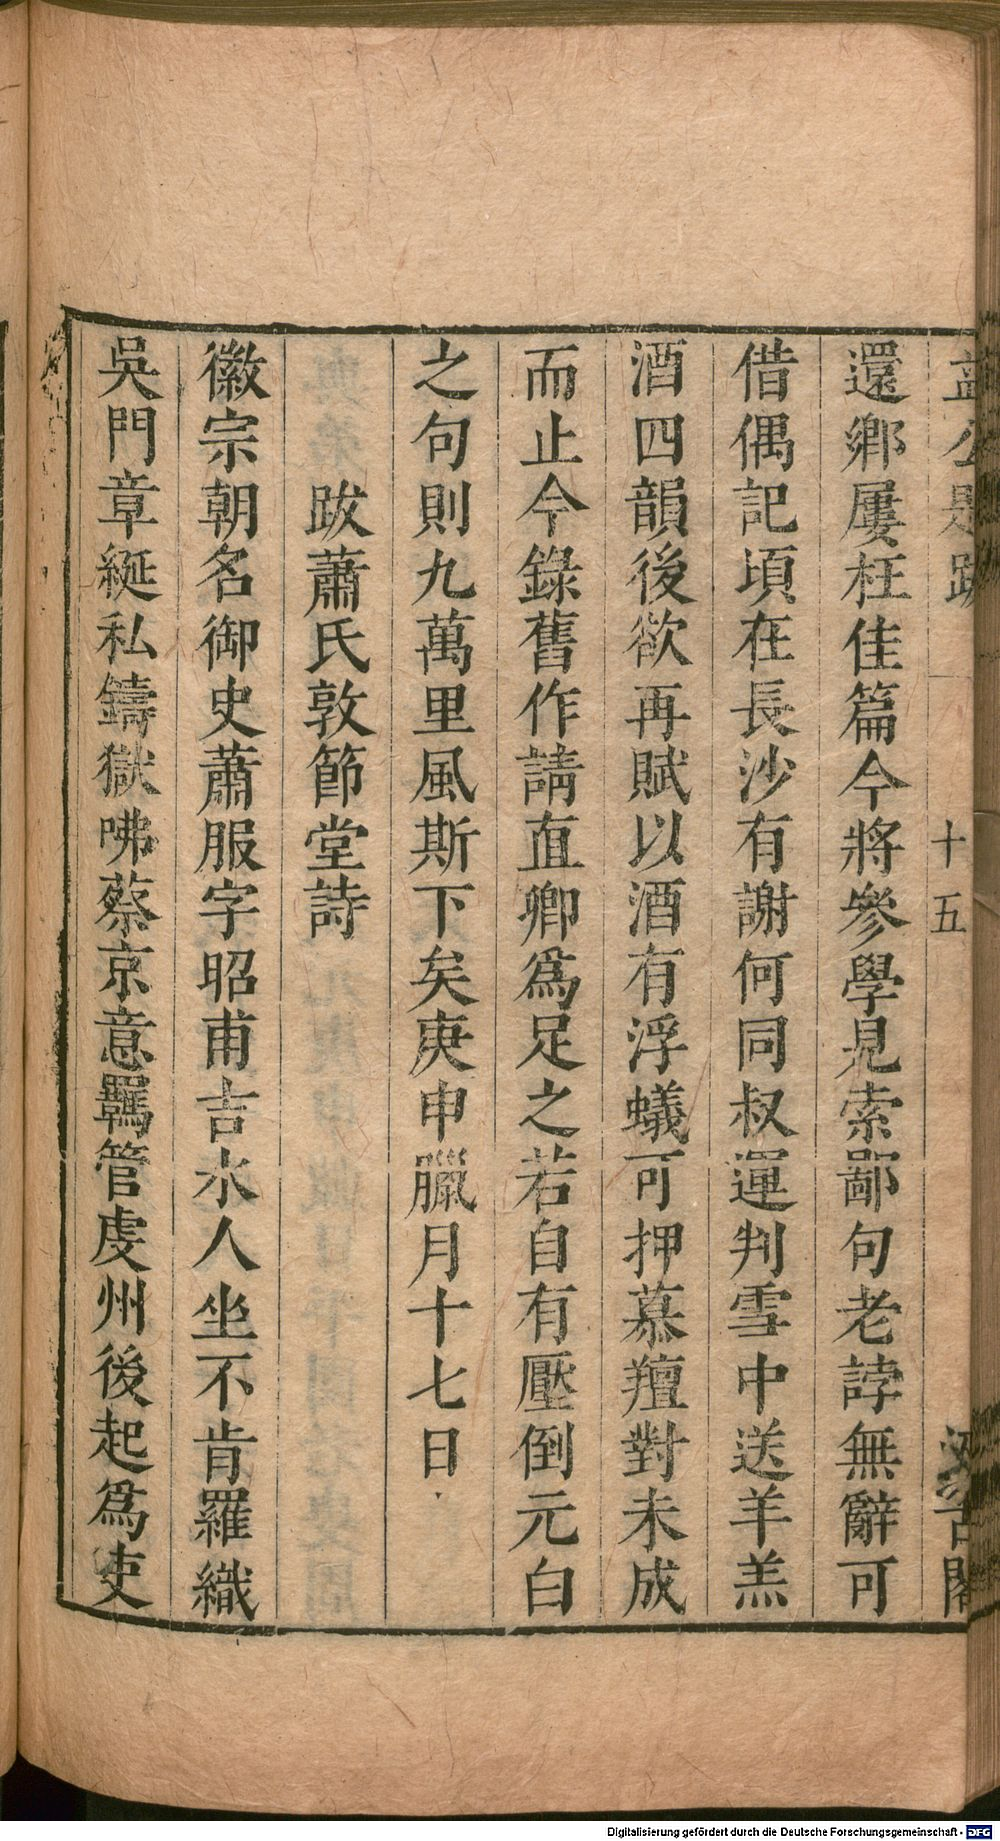 益公題跋 十五 汲古閣
還鄉屢枉佳篇今將參學見索鄙句老誖無辭可
借偶記頃在長沙有謝何同叔運判雪中送羊羔
酒四韻後欲再賦以酒有浮蟻可押慕羶對未成
而止今錄舊作請直卿爲足之若自有壓倒元白
之句則九萬里風斯下矣庚申臘月十七日
跋蕭氏敦節堂詩
徽宗朝名御史蕭服字昭甫吉水人坐不肯羅織
吳門章綖私鑄獄咈蔡京意羈管虔州後起爲吏
Digitalisierung gefördert durch die Deutsche Forschungsgemeinschaft - DFG